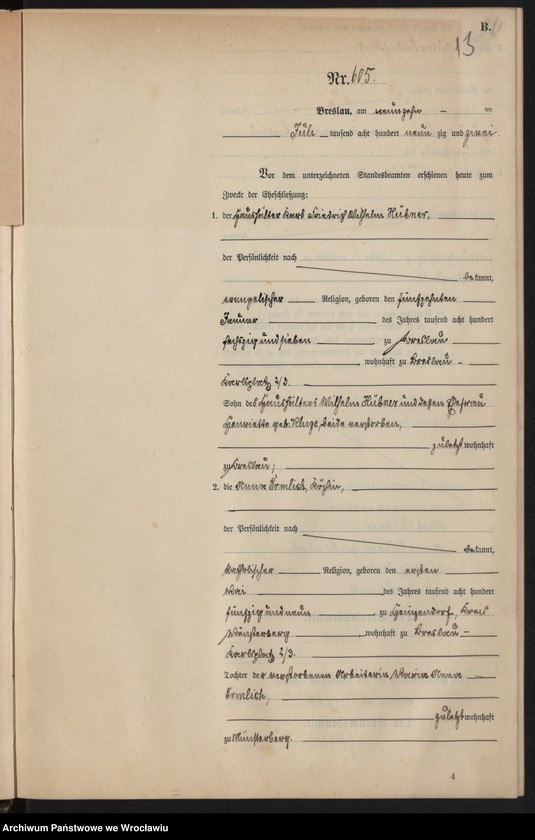 B.
13
Nr. 605.
Breslau, am neunzehn – ten
Juli tausend acht hundert neun zig und zwei.
Vor dem unterzeichneten Standesbeamten erschienen heute zum
Zwecke der Eheschließung:
1. der Haushälter Karl Friedrich Wilhelm Hübner,
der Persönlichkeit nach
bekannt,
evangelischer Religion, geboren den fünfzehnten
Januar des Jahres tausend acht hundert
sechszig und sieben zu Breslau
, wohnhaft zu Breslau –
Karlsplatz 2/3.
Sohn des Haushälters Wilhelm Hübner und dessen Ehefrau
Henriette geb: Kluge, beide verstorben,
zuletzt wohnhaft
zu Breslau;
2. die Anna Ermlich, Köchin,
der Persönlichkeit nach
bekannt,
katholischer Religion, geboren den ersten
Mai des Jahres tausend acht hundert
fünfzig und neun zu Heinzendorf, Kreis
Münsterberg, wohnhaft zu Breslau –
Karlsplatz 2/3.
Tochter der verstorbenen Arbeiterin Maria Anna
Ermlich,
zuletzt wohnhaft
zu Münsterberg.
4
Archiwum Państwowe we Wrocławiu